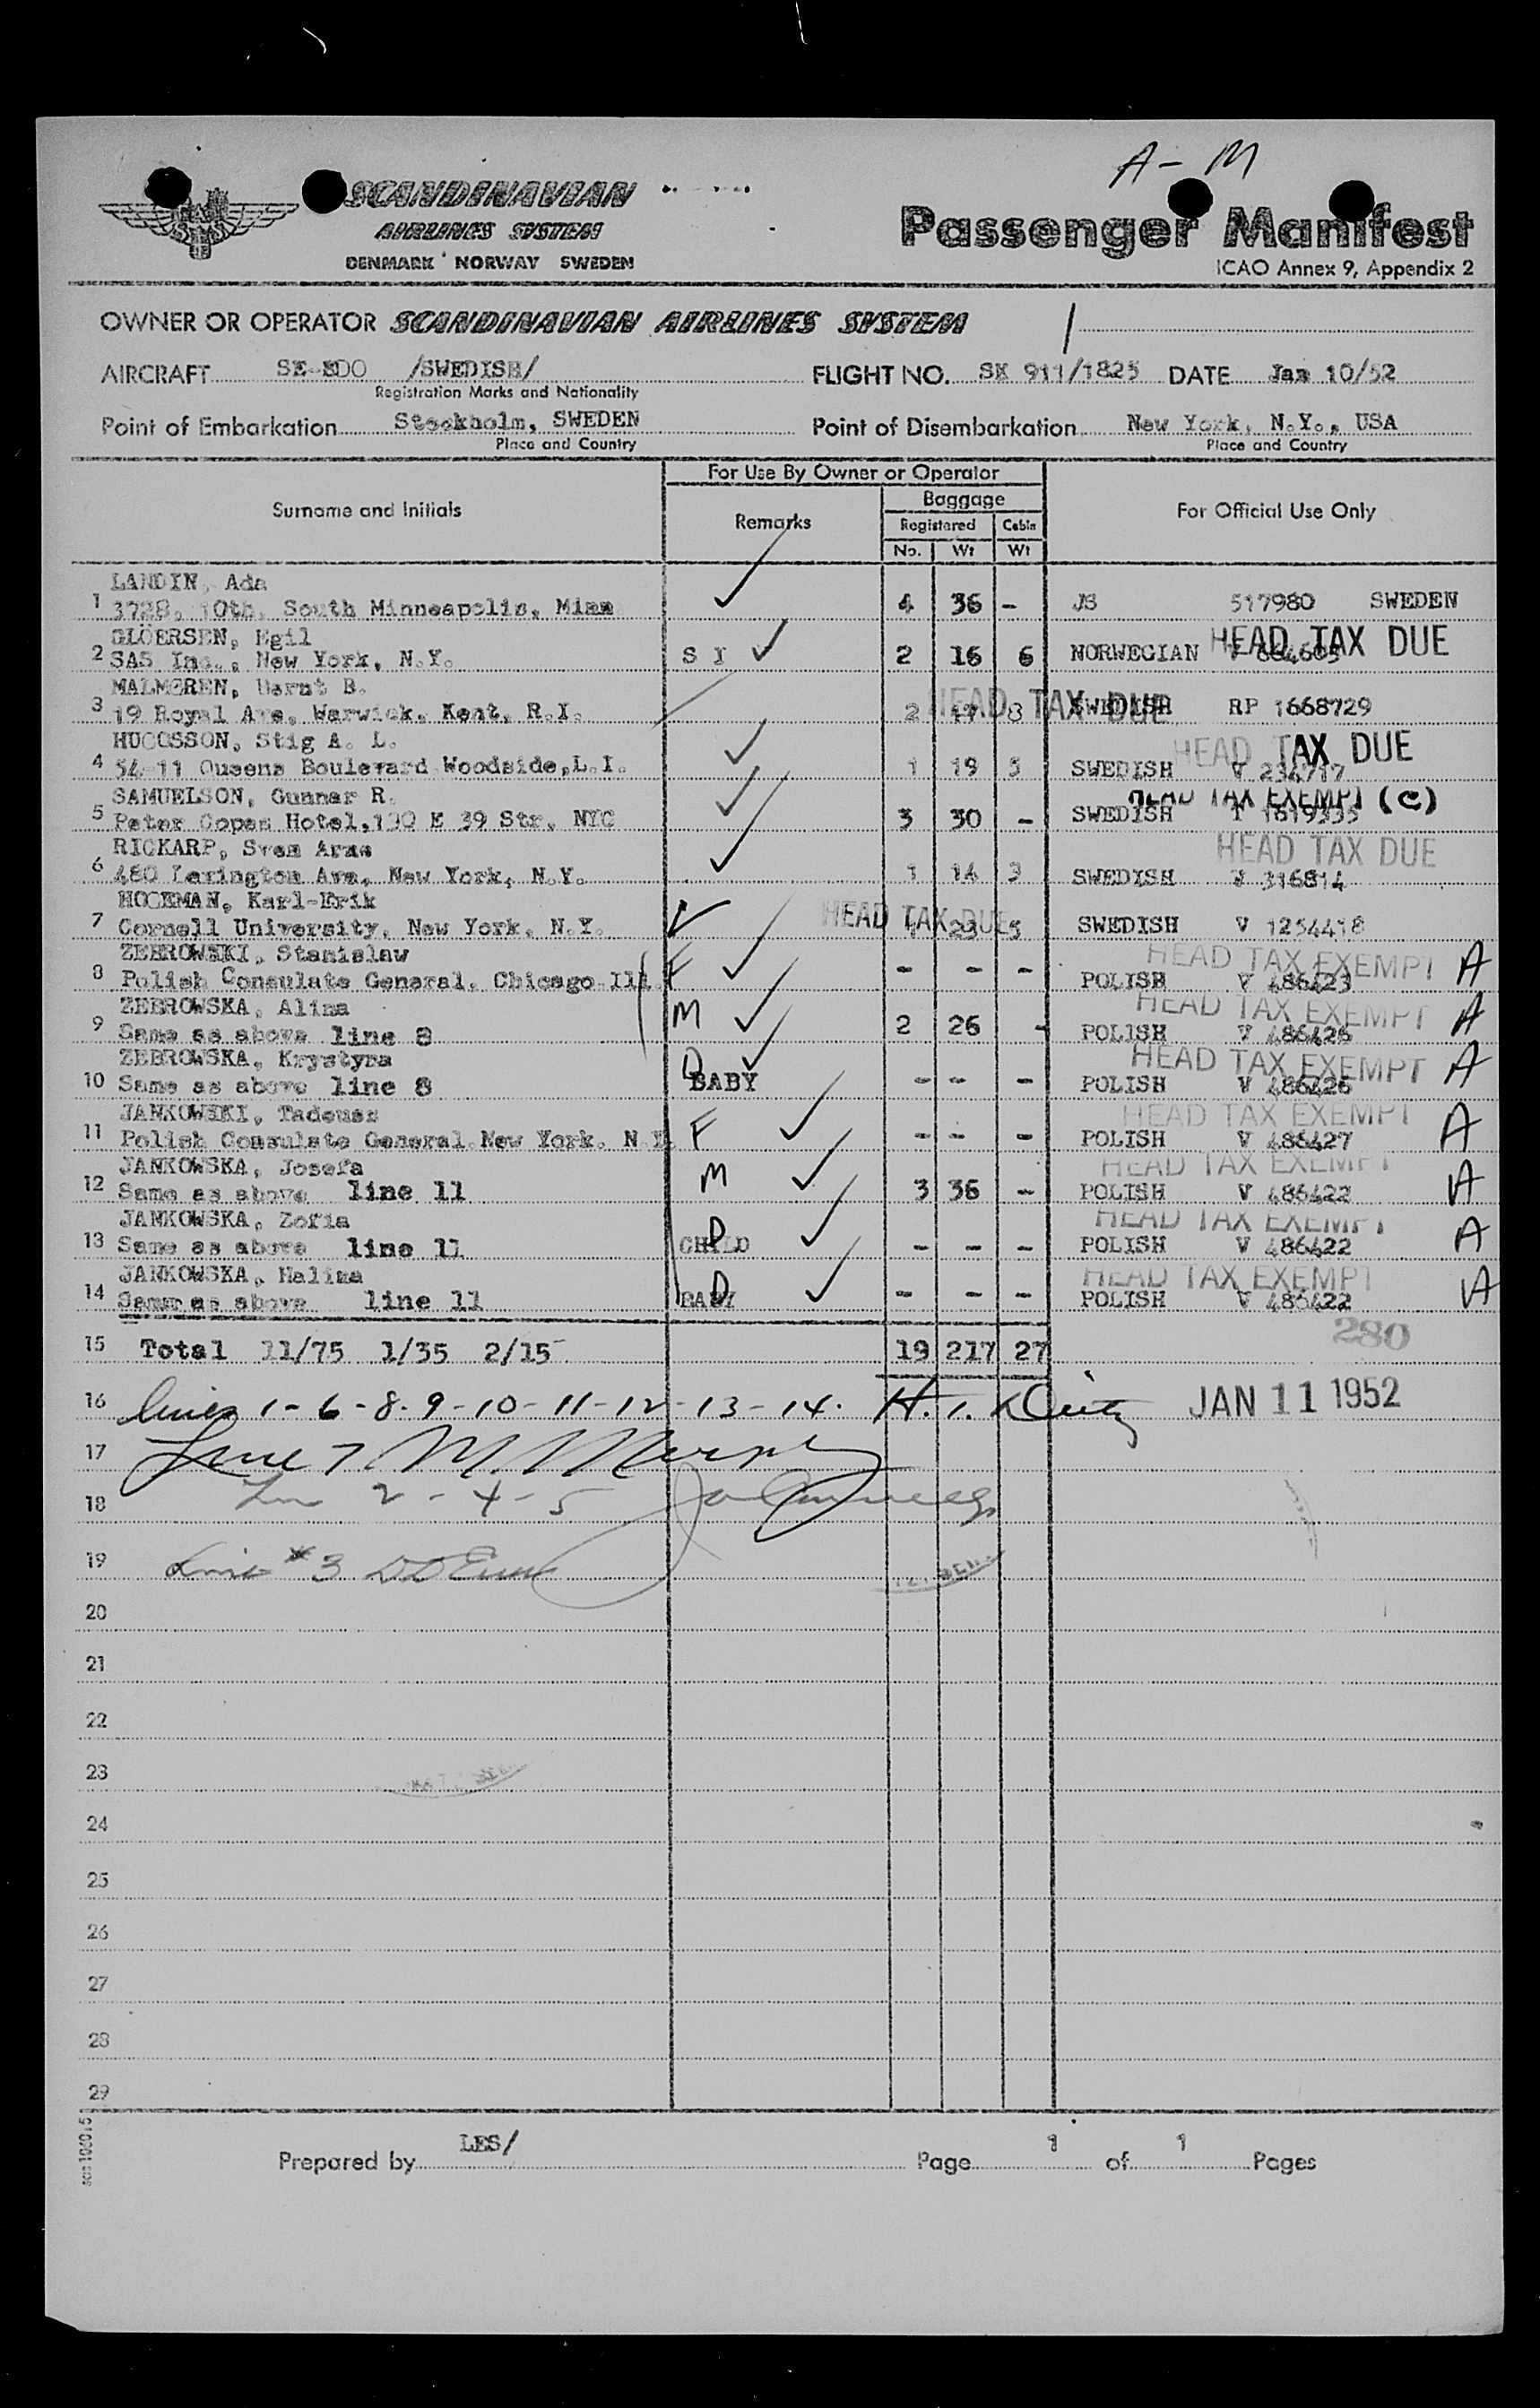 A - M
SCANDINAVIAN
AIRLINES SYSTEM
DENMARK NORWAY SWEDEN
Passenger Manifest
ICAO Annex 9, Appendix 2
OWNER OR OPERATOR SCANDINAVIAN AIRLINES SYSTEM
AIRCRAFT /SWEDISH/ FLIGHT NO. SK 911/1825 DATE Jan 10/52
Registration Marks and Nationality
Point of Embarkation Stockholm, SWEDEN Point of Disembarkation New York, N.Y., USA
Place and Country Place and Country
For Use By Owner or Operator
Surname and Initials Remarks Baggage For Official Use Only
Registered Cabin
No. Wt Wt
LANDIN, Ada
1 3728, 10th, South Minneapolis, Minn 4 36 - JS 517980 SWEDEN
GLÖERSEN, Egil HEAD TAX DUE
2 SAS Inc., New York, N.Y. S I 2 16 6 NORWEGIAN
MALMGREN, Bernt B. HEAD TAX DUE
3 19 Royal Ave, Warwick, Kent, R.I. 2 17 8 SWEDISH RP 1668729
HUGOSSON, Stig A. L. HEAD TAX DUE
4 54-11 Queens Boulevard Woodside, L.I. 1 19 5 SWEDISH V 234717
SAMUELSON, Gunnar R. HEAD TAX EXEMPT (C)
5 Peter Copes Hotel, 130 E 39 Str, NYC 3 30 - SWEDISH
RICKARP, Sven Arne HEAD TAX DUE
6 480 Lexington Ave, New York, N.Y. 1 14 3 SWEDISH V 316814
Karl-Erik HEAD TAX DUE
7 Cornell University, New York, N.Y. 23 5 SWEDISH V 1254418
ZEBROWSKI, Stanislaw HEAD TAX EXEMPT A
8 Polish Consulate General, Chicago Ill F - - - POLISH V 486423
ZEBROWSKA, Alina HEAD TAX EXEMPT A
9 Same as above line 8 M 2 26 - POLISH V 486426
ZEBROWSKA, Krystyna HEAD TAX EXEMPT A
10 Same as above line 8 D BABY - - - POLISH V 486426
JANKOWSKI, Tadeusz HEAD TAX EXEMPT A
11 Polish Consulate General New York, N.Y. F - - - POLISH V 486427
JANKOWSKA, Josefa HEAD TAX EXEMPT A
12 Same as above line 11 M 3 36 - POLISH V 486422
JANKOWSKA, Zofia HEAD TAX EXEMPT A
13 Same as above line 11 CHILD D - - - POLISH V 486422
JANKOWSKA, Halina HEAD TAX EXEMPT A
14 Same as above line 11 BABY D - - - POLISH V 486422
280
15 Total 11/75 1/35 2/15 19 217 27
16 lines 1-6-8-9-10-11-12-13-14. JAN 11 1952
17 Line 7. M. Murphy
18 2-4-5
19 Line #3
20
21
22
23
24
25
26
27
28
29
Prepared by LES/ Page 1 of 1 Pages